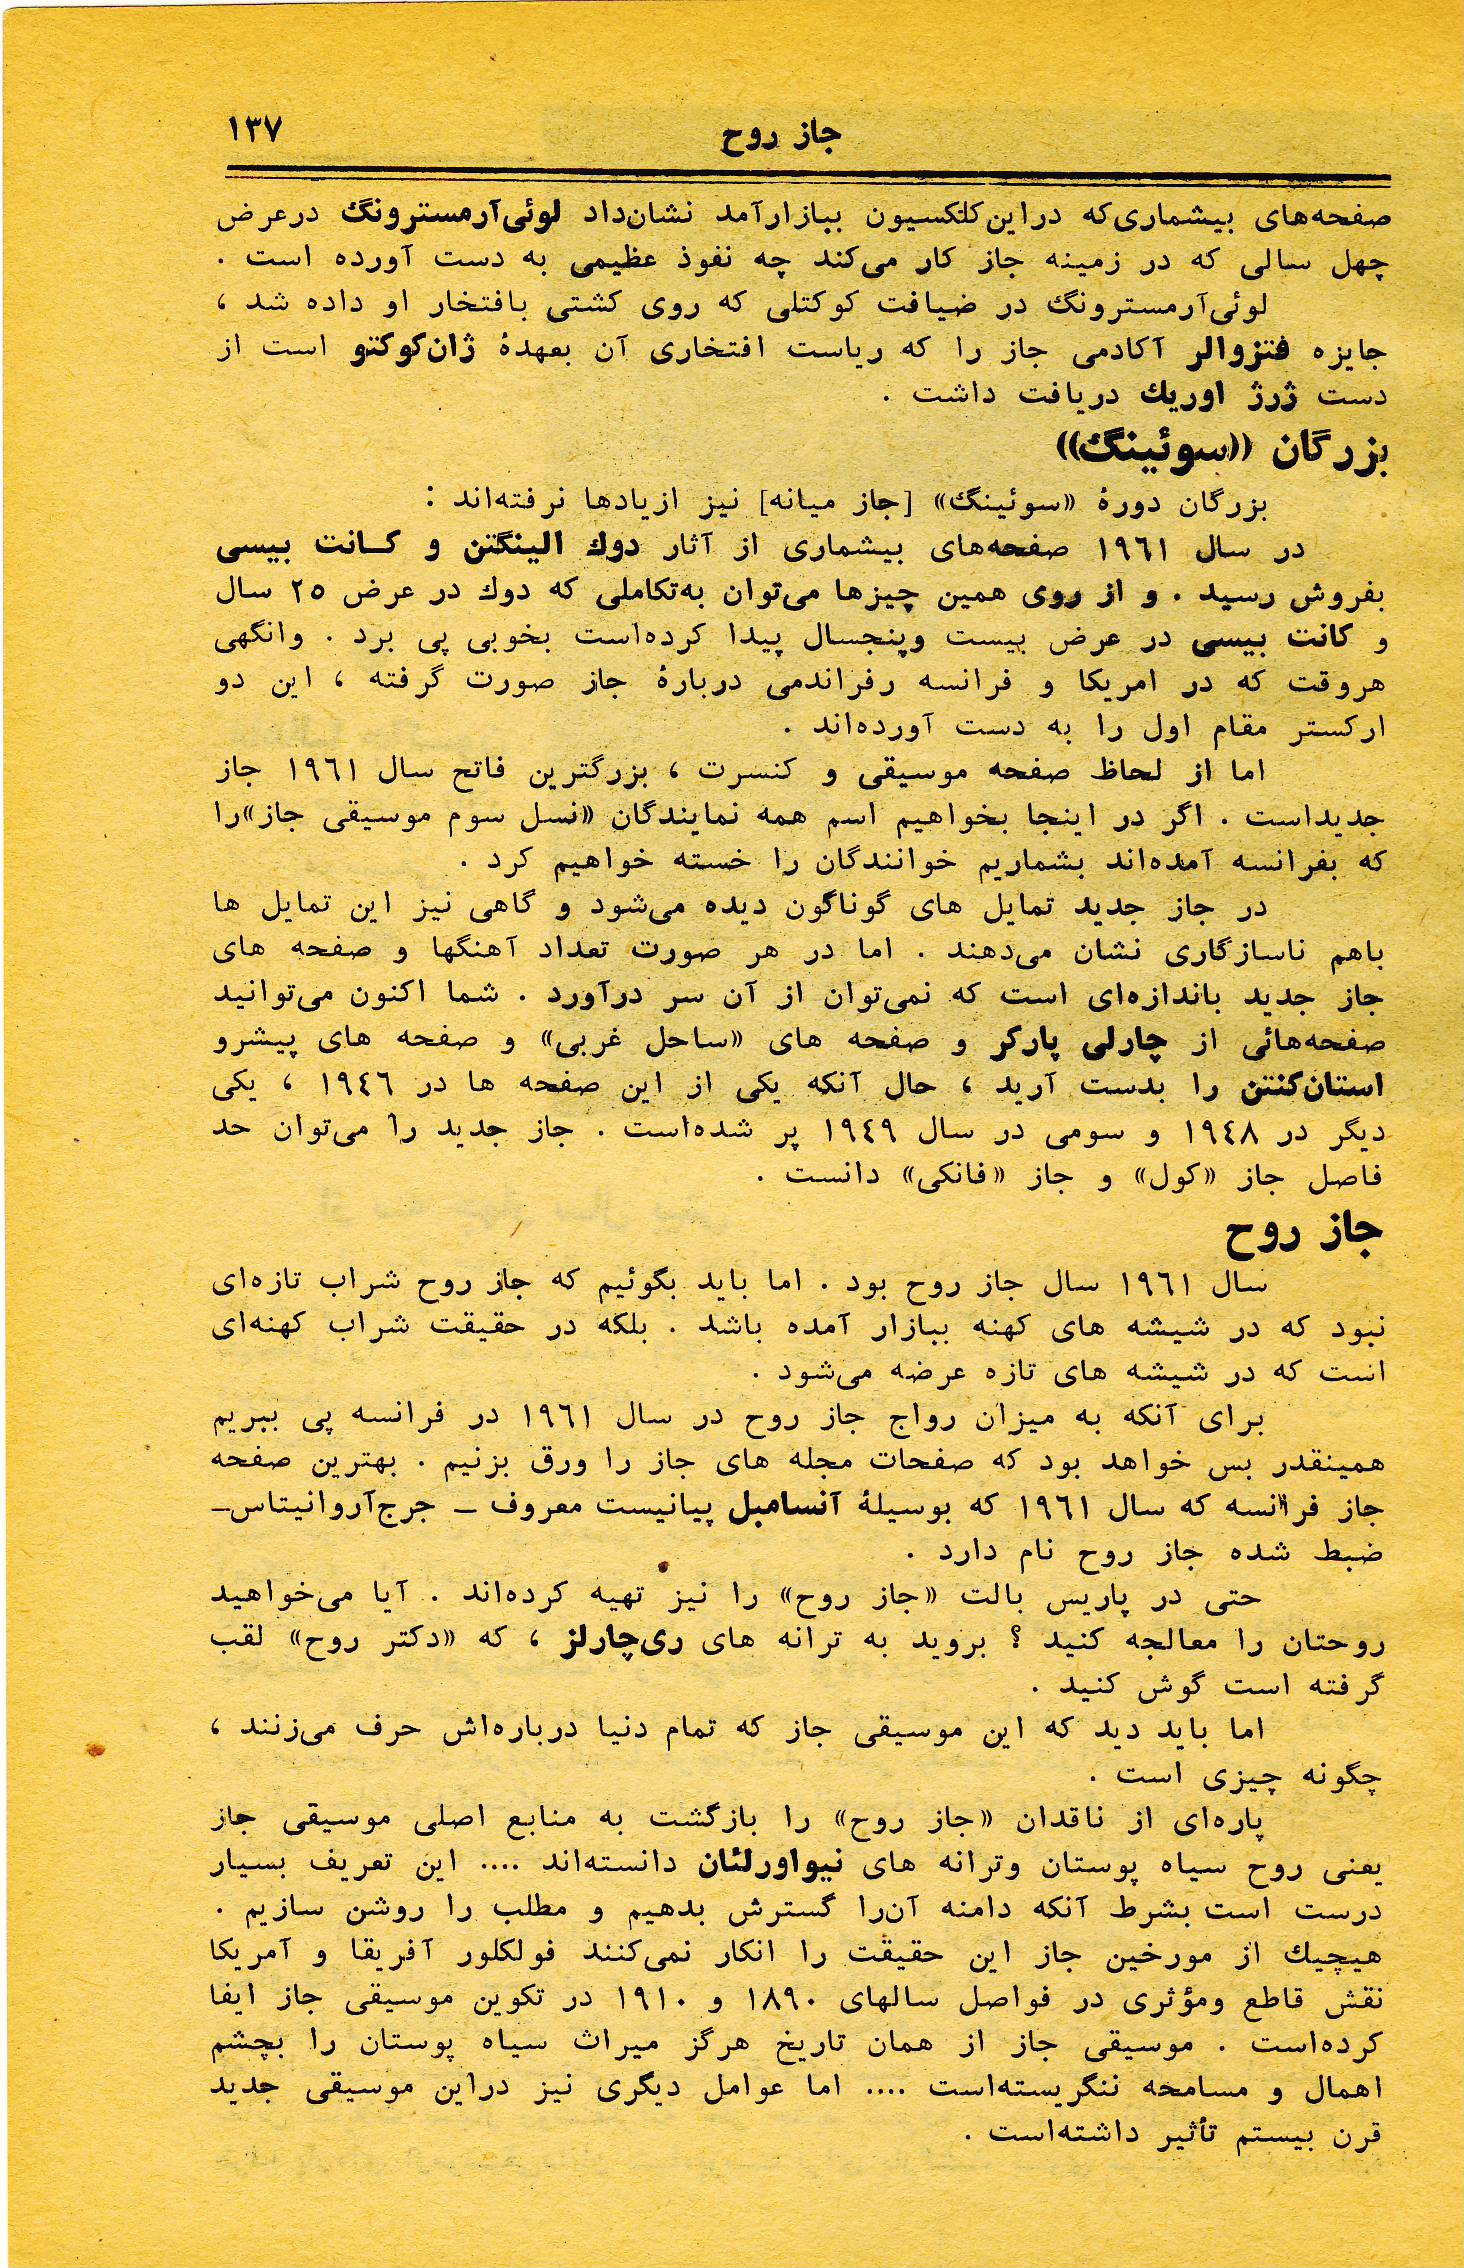 جاز روح ۱۳۷
صفحه‌های بیشماری‌که دراین‌کلکسیون ببازارآمد نشان‌داد لوئی‌آرمسترونگ درعرض
چهل سالی که در زمینه جاز کار می‌کند چه نفوذ عظیمی به دست آورده است .
لوئی‌آرمسترونگ در ضیافت کوکتلی که روی کشتی بافتخار او داده شد ،
جایزه فتزوالر آکادمی جاز را که ریاست افتخاری آن بعهدهٔ ژان‌کوکتو است از
دست ژرژ اوریك دریافت داشت .
بزرگان ((سوئینگ))
بزرگان دورهٔ «سوئینگ» [جاز میانه] نیز ازیادها نرفته‌اند :
در سال ۱۹٦۱ صفحه‌های بیشماری از آثار دوك الینگتن و کـانت بیسی
بفروش رسید . و از روی همین چیزها می‌توان به‌تکاملی که دوك در عرض ۲۵ سال
و کانت بیسی در عرض بیست وپنجسال پیدا کرده‌است بخوبی پی برد . وانگهی
هروقت که در امریکا و فرانسه رفراندمی دربارهٔ جاز صورت گرفته ، این دو
ارکستر مقام اول را به دست آورده‌اند .
اما از لحاظ صفحه موسیقی و کنسرت ، بزرگترین فاتح سال ۱۹٦۱ جاز
جدیداست . اگر در اینجا بخواهیم اسم همه نمایندگان «نسل سوم موسیقی جاز»را
که بفرانسه آمده‌اند بشماریم خوانندگان را خسته خواهیم کرد .
در جاز جدید تمایل های گوناگون دیده می‌شود و گاهی نیز این تمایل ها
باهم ناسازگاری نشان می‌دهند . اما در هر صورت تعداد آهنگها و صفحه های
جاز جدید باندازه‌ای است که نمی‌توان از آن سر درآورد . شما اکنون می‌توانید
صفحه‌هائی از چارلی پارکر و صفحه های «ساحل غربی» و صفحه های پیشرو
استان‌کنتن را بدست آرید ، حال آنکه یکی از این صفحه ها در ۱۹٤٦ ، یکی
دیگر در ۱۹٤۸ و سومی در سال ۱۹٤۹ پر شده‌است . جاز جدید را می‌توان حد
فاصل جاز «کول» و جاز «فانکی» دانست .
جاز روح
سال ۱۹٦۱ سال جاز روح بود . اما باید بگوئیم که جاز روح شراب تازه‌ای
نبود که در شیشه های کهنه ببازار آمده باشد . بلکه در حقیقت شراب کهنه‌ای
است که در شیشه های تازه عرضه می‌شود .
برای آنکه به میزان رواج جاز روح در سال ۱۹٦۱ در فرانسه پی ببریم
همینقدر بس خواهد بود که صفحات مجله های جاز را ورق بزنیم . بهترین صفحه
جاز فرانسه که سال ۱۹٦۱ که بوسیلهٔ آنسامبل پیانیست معروف ـ جرج‌آروانیتاس‌ـ
ضبط شده جاز روح نام دارد .
حتی در پاریس بالت «جاز روح» را نیز تهیه کرده‌اند . آیا می‌خواهید
روحتان را معالجه کنید ؟ بروید به ترانه های ری‌چارلز ، که «دکتر روح» لقب
گرفته است گوش کنید .
اما باید دید که این موسیقی جاز که تمام دنیا درباره‌اش حرف می‌زنند ،
چگونه چیزی است .
پاره‌ای از ناقدان «جاز روح» را بازگشت به منابع اصلی موسیقی جاز
یعنی روح سیاه پوستان وترانه های نیواورلئان دانسته‌اند .... این تعریف بسیار
درست است بشرط آنکه دامنه آن‌را گسترش بدهیم و مطلب را روشن سازیم .
هیچیك از مورخین جاز این حقیقت را انکار نمی‌کنند فولکلور آفریقا و آمریکا
نقش قاطع ومؤثری در فواصل سالهای ۱۸۹۰ و ۱۹۱۰ در تکوین موسیقی جاز ایفا
کرده‌است . موسیقی جاز از همان تاریخ هرگز میراث سیاه پوستان را بچشم
اهمال و مسامحه ننگریسته‌است .... اما عوامل دیگری نیز دراین موسیقی جدید
قرن بیستم تأثیر داشته‌است .